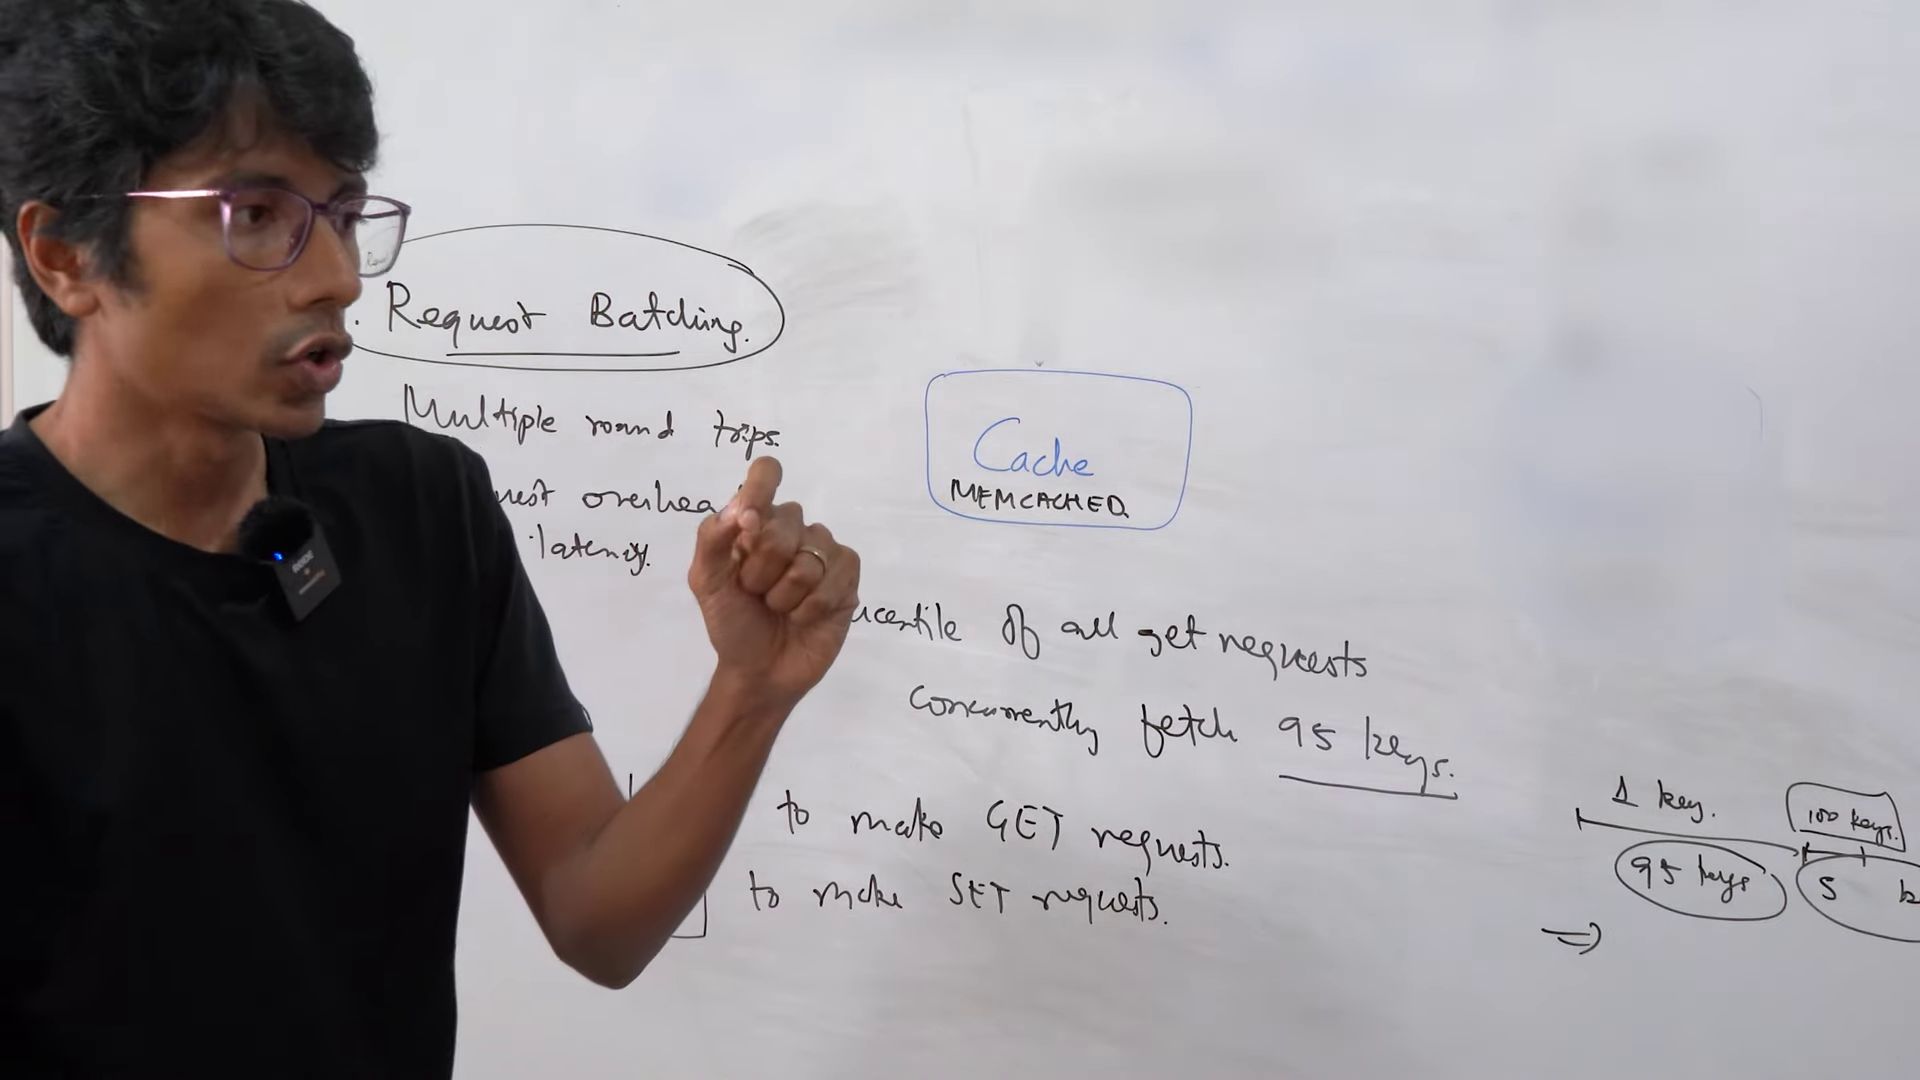 Request Batching.
Multiple round trips.
overhea
latency.
Cache
MEMCACHED
of all get requests
concurrently fetch 95 keys.
to make GET requests.
to make SET requests.
1 key.
100 keys.
95 keys
5 k
=>